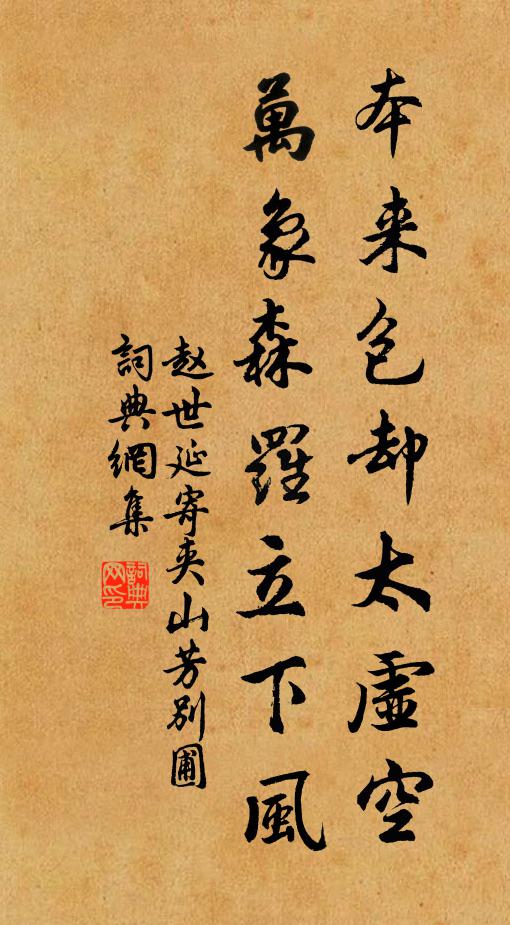 本来包却太虛空
萬象森羅立下風
赵世延寄夹山芳别圃
詞典網集
詞典
网印